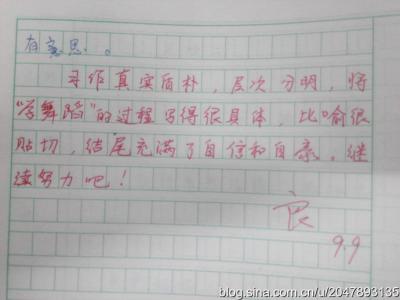 有意思。
习作真实质朴，层次分明，将
“学舞蹈”的过程写得很具体，比喻很
贴切，结尾充满了自信和自豪。继
续努力吧！
良
9.9
blog.sina.com.cn/u/2047893135